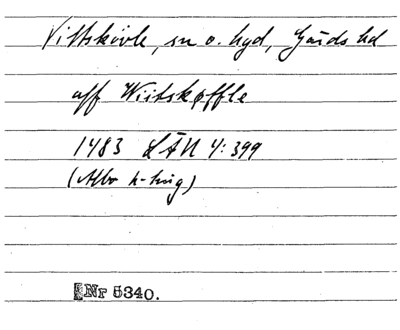 Vittskövle, sn o. hgd, Gärds hd
aff Wiitskøffle
1483 LÄU 4: 399
(Albo h-ting)
Nr 5340.